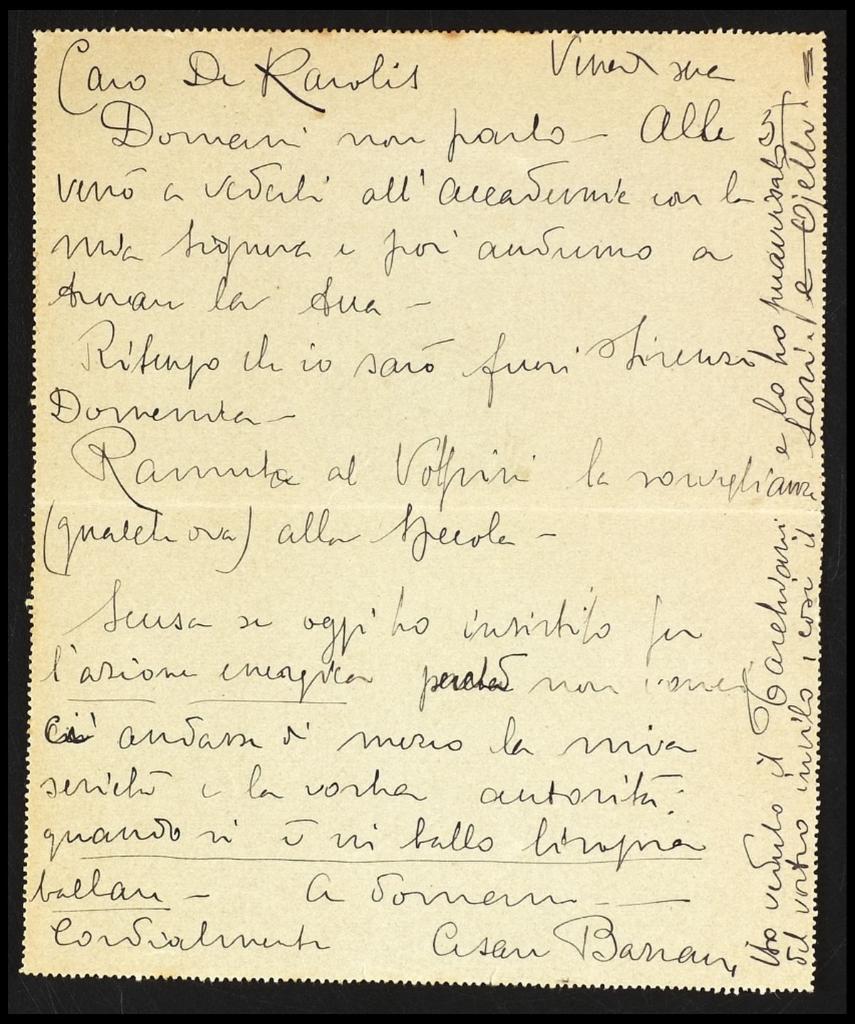 Caro De Karolis Venerdì sera
Domani non parto - Alle 3
verrò a vederti all'Accademia con la
mia signora e poi andremo a
trovare la tua -
Ritengo che io sarò fuori Firenze
Domenica -
Rammenta al Volpini la sorveglianza
(qualche ora) alla Specola -
Scusa se oggi ho insistito per
l'azione energica perché non
ci andasse di mezzo la mia
serietà e la vostra autorità:
quando si è in ballo bisogna
ballare - A domani -
Cordialmente Cesare Bazzani
Ho veduto il Tarchiani e lo ho preavvisato
del vostro invito, così il Lari. e Ojetti =